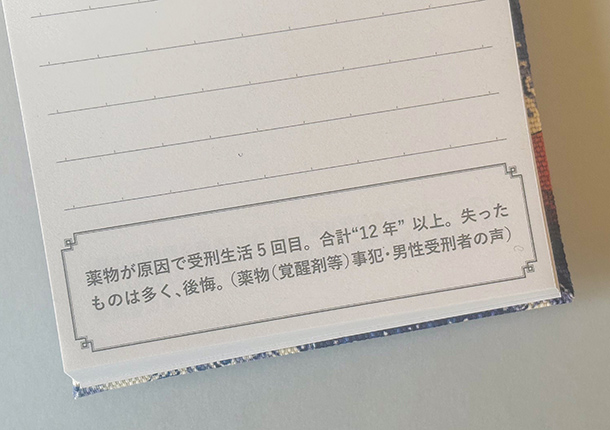 薬物が原因で受刑生活5回目。合計“12年”以上。失った
ものは多く、後悔。(薬物(覚醒剤等)事犯・男性受刑者の声)